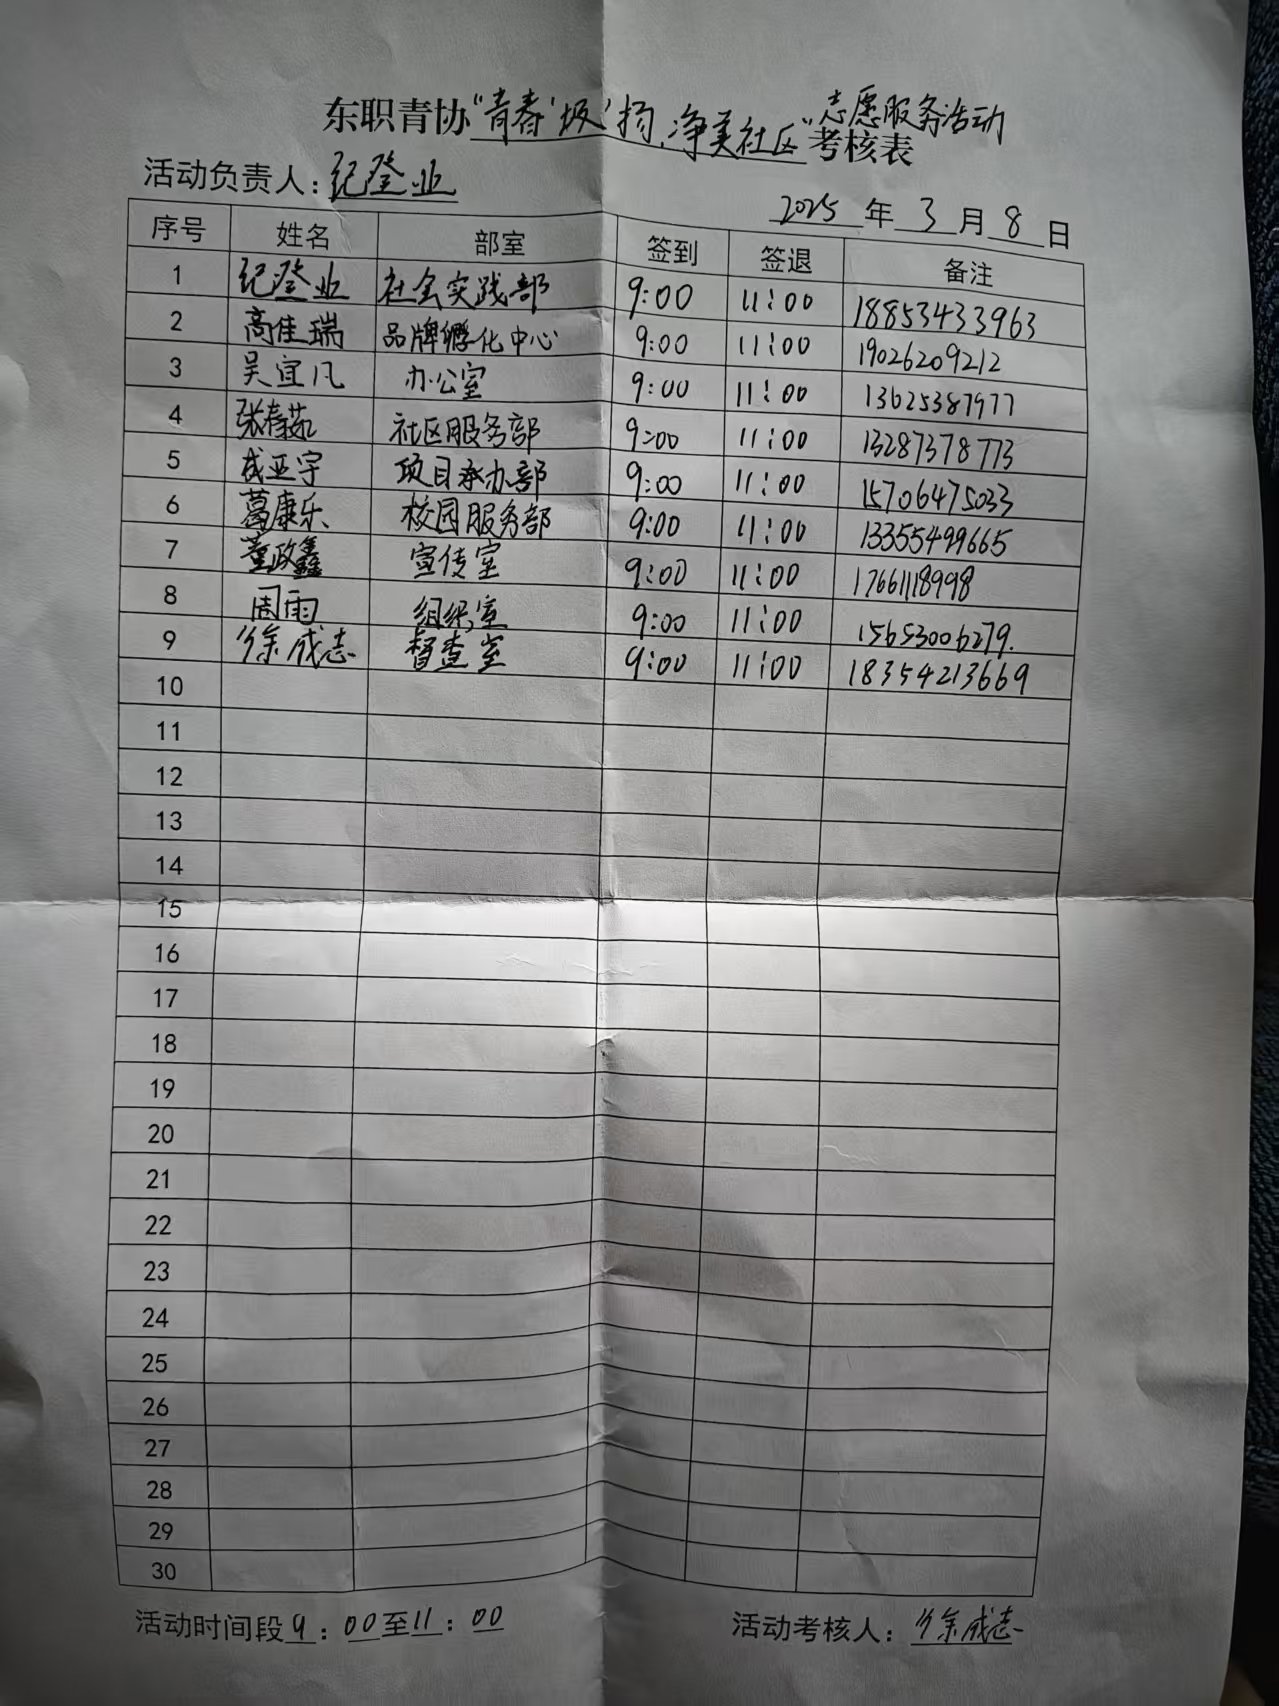 志愿服务活动
东职青协“青春‘圾’扬,净美社区”考核表
活动负责人:纪登业
2025年3月8日
序号 姓名 部室 签到 签退 备注
1 纪登业 社会实践部 9:00 11:00 18853433963
2 高佳瑞 品牌孵化中心 9:00 11:00 19026209212
3 吴宜凡 办公室 9:00 11:00 13625387977
4 张春茹 社区服务部 9:00 11:00 13287378773
5 成亚宇 项目承办部 9:00 11:00 15706475033
6 葛康乐 校园服务部 9:00 11:00 13355499665
7 董政鑫 宣传室 9:00 11:00 17661118998
8 周雨 组织室 9:00 11:00 15653006279.
9 徐成志 督查室 9:00 11:00 18354213669
10
11
12
13
14
15
16
17
18
19
20
21
22
23
24
25
26
27
28
29
30
活动时间段9:00至11:00 活动考核人:徐成志